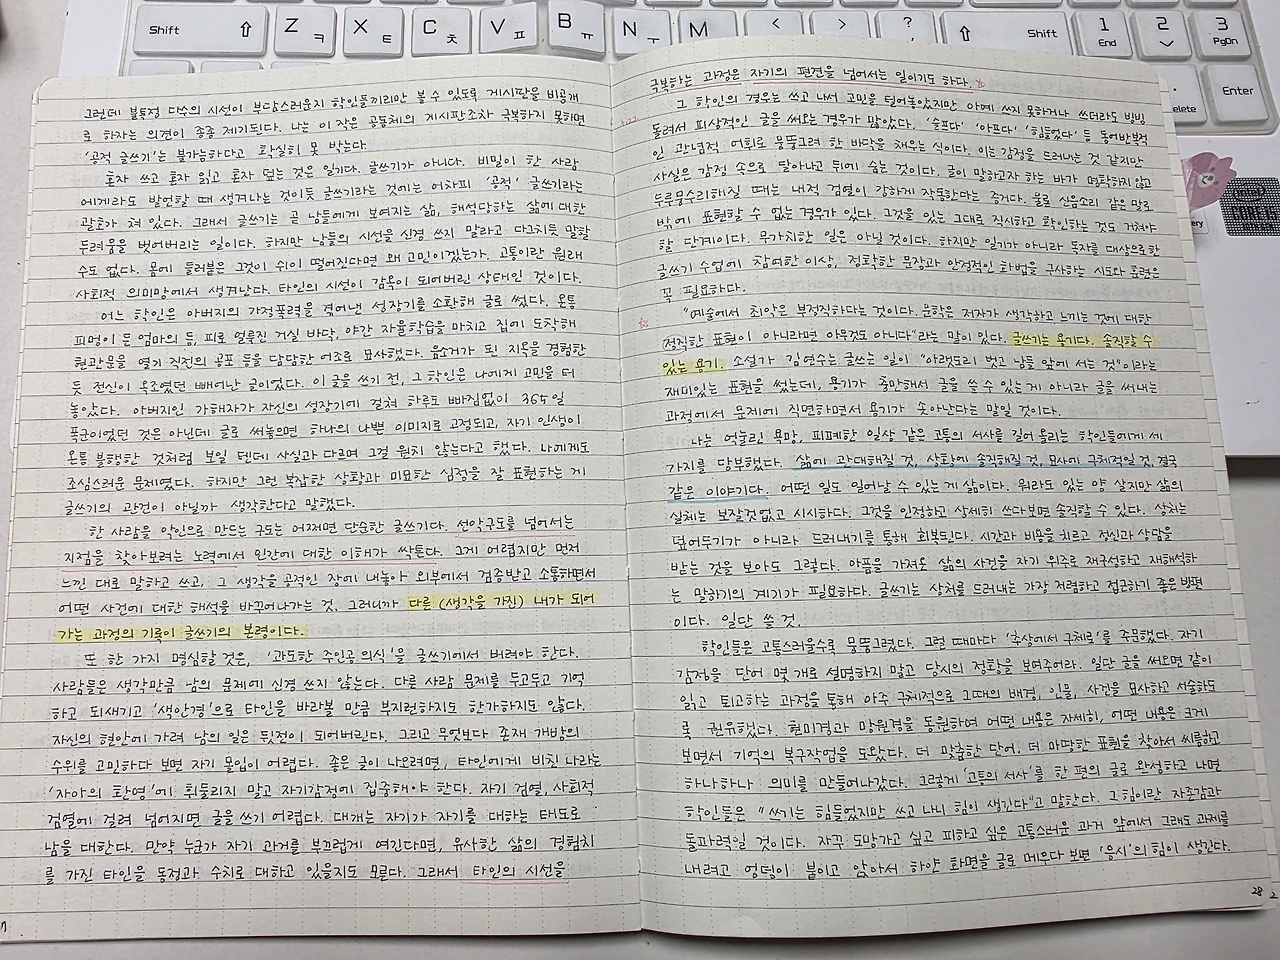 Shift
Z ㅋ
X ㅌ
C ㅊ
V ㅍ
B ㅠ
N ㅜ
M
<
>
?
/
Shift
1 End
2
3 PgDn
Enter
그런데 불특정 다수의 시선이 부담스러운지 학인들끼리만 볼 수 있도록 게시판을 비공개
로 하자는 의견이 종종 제기된다. 나는 이 작은 공동체의 게시판조차 극복하지 못하면
'공적 글쓰기'는 불가능하다고 확실히 못 박는다.
혼자 쓰고 혼자 읽고 혼자 덮는 것은 일기다. 글쓰기가 아니다. 비밀이 한 사람
에게라도 발언할 때 생겨나는 것이듯 글쓰기라는 것에는 어차피 '공적' 글쓰기라는
괄호가 쳐 있다. 그래서 글쓰기는 곧 남들에게 보여지는 삶, 해석당하는 삶에 대한
두려움을 벗어버리는 일이다. 하지만 남들의 시선을 신경 쓰지 말라고 다그치듯 말할
수도 없다. 몸에 들러붙은 그것이 쉬이 떨어진다면 왜 고민이겠는가. 고통이란 원래
사회적 의미망에서 생겨난다. 타인의 시선이 감옥이 되어버린 상태인 것이다.
어느 학인은 아버지의 가정폭력을 겪어낸 성장기를 소환해 글로 썼다. 온통
피멍이 든 엄마의 등, 피로 얼룩진 거실 바닥, 야간 자율학습을 마치고 집에 도착해
현관문을 열기 직전의 공포 등을 담담한 어조로 묘사했다. 음소거가 된 지옥을 경험한
듯 전신이 옥조였던 빼어난 글이었다. 이 글을 쓰기 전, 그 학인은 나에게 고민을 터
놓았다. 아버지인 가해자가 자신의 성장기에 걸쳐 하루도 빠짐없이 365일
폭군이었던 것은 아닌데 글로 써놓으면 하나의 나쁜 이미지로 고정되고, 자기 인생이
온통 불행한 것처럼 보일 텐데 사실과 다르며 그걸 원치 않는다고 했다. 나에게도
조심스러운 문제였다. 하지만 그런 복잡한 상황과 미묘한 심정을 잘 표현하는 게
글쓰기의 관건이 아닐까 생각한다고 말했다.
한 사람을 악인으로 만드는 구도는 어쩌면 단순한 글쓰기다. 선악구도를 넘어서는
지점을 찾아보려는 노력에서 인간에 대한 이해가 싹튼다. 그게 어렵지만 먼저
느낀 대로 말하고 쓰고, 그 생각을 공적인 장에 내놓아 외부에서 검증받고 소통하면서
어떤 사건에 대한 해석을 바꾸어나가는 것, 그러니까 다른 (생각을 가진) 내가 되어
가는 과정의 기록이 글쓰기의 본령이다.
또 한 가지 명심할 것은, '과도한 주인공 의식'을 글쓰기에서 버려야 한다.
사람들은 생각만큼 남의 문제에 신경 쓰지 않는다. 다른 사람 문제를 두고두고 기억
하고 되새기고 '색안경'으로 타인을 바라볼 만큼 부지런하지도 한가하지도 않다.
자신의 현안에 가려 남의 일은 뒷전이 되어버린다. 그리고 무엇보다 존재 개방의
수위를 고민하다 보면 자기 몰입이 어렵다. 좋은 글이 나오려면, 타인에게 비칠 나라는
'자아의 환영'에 휘둘리지 말고 자기감정에 집중해야 한다. 자기 검열, 사회적
검열에 걸려 넘어지면 글을 쓰기 어렵다. 대개는 자기가 자기를 대하는 태도로
남을 대한다. 만약 누군가 자기 과거를 부끄럽게 여긴다면, 유사한 삶의 경험치
를 가진 타인을 동정과 수치로 대하고 있을지도 모른다. 그래서 타인의 시선을
극복하는 과정은 자기의 편견을 넘어서는 일이기도 하다.
그 학인의 경우는 쓰고 나서 고민을 털어놓았지만 아예 쓰지 못하거나 쓰더라도 빙빙
돌려서 피상적인 글을 써오는 경우가 많았다. '슬프다' '아프다' '힘들었다' 등 동어반복적
인 관념적 어휘로 뭉뚱그려 한 바닥을 채우는 식이다. 이는 감정을 드러내는 것 같지만
사실은 감정 속으로 달아나고 뒤에 숨는 것이다. 글이 말하고자 하는 바가 명확하지 않고
두루뭉수리해질 때는 내적 검열이 강하게 작동한다는 증거다. 물론 신음소리 같은 말로
밖에 표현할 수 없는 경우가 있다. 그것을 있는 그대로 직시하고 확인하는 것도 거쳐야
할 단계이다. 무가치한 일은 아닐 것이다. 하지만 일기가 아니라 독자를 대상으로한
글쓰기 수업에 참여한 이상, 정확한 문장과 안정적인 화법을 구사하는 시도와 훈련은
꼭 필요하다.
"예술에서 최악은 부정직하다는 것이다. 문학은 저자가 생각하고 느끼는 것에 대한
정직한 표현이 아니라면 아무것도 아니다"라는 말이 있다. 글쓰기는 용기다. 솔직할 수
있는 용기. 소설가 김연수는 글쓰는 일이 "아랫도리 벗고 남들 앞에 서는 것"이라는
재미있는 표현을 썼는데, 용기가 충만해서 글을 쓸 수 있는게 아니라 글을 써내는
과정에서 문제에 직면하면서 용기가 솟아난다는 말일 것이다.
나는 억눌린 욕망, 피폐한 일상 같은 고통의 서사를 길어 올리는 학인들에게 세
가지를 당부했다. 삶에 관대해질 것, 상황에 솔직해질 것, 묘사에 구체적일 것, 결국
같은 이야기다. 어떤 일도 일어날 수 있는 게 삶이다. 뭐라도 있는 양 살지만 삶의
실체는 보잘것없고 시시하다. 그것을 인정하고 상세히 쓰다보면 솔직할 수 있다. 상처는
덮어두기가 아니라 드러내기를 통해 회복된다. 시간과 비용을 치르고 정신과 상담을
받는 것을 보아도 그렇다. 아픔을 가져온 삶의 사건을 자기 위주로 재구성하고 재해석하
는 말하기의 계기가 필요하다. 글쓰기는 상처를 드러내는 가장 저렴하고 접근하기 좋은 방편
이다. 일단 쓸 것.
학인들은 고통스러울수록 뭉뚱그렸다. 그런 때마다 '추상에서 구체로'를 주문했다. 자기
감정을 단어 몇 개로 설명하지 말고 당시의 정황을 보여주어라. 일단 글을 써오면 같이
읽고 퇴고하는 과정을 통해 아주 구체적으로 그때의 배경, 인물, 사건을 묘사하고 서술하도
록 권유했다. 현미경과 망원경을 동원하여 어떤 내용은 자세히, 어떤 내용은 크게
보면서 기억의 복구작업을 도왔다. 더 맞춤한 단어, 더 마땅한 표현을 찾아서 씨름하고
하나하나 의미를 만들어나갔다. 그렇게 '고통의 서사'를 한 편의 글로 완성하고 나면
학인들은 "쓰기는 힘들었지만 쓰고 나니 힘이 생긴다"고 말한다. 그 힘이란 자존감과
돌파력일 것이다. 자꾸 도망가고 싶고 피하고 싶은 고통스러운 과거 앞에서 그래도 과제를
내려고 엉덩이 붙이고 앉아서 하얀 화면을 글로 메우다 보면 '응시'의 힘이 생긴다.
28